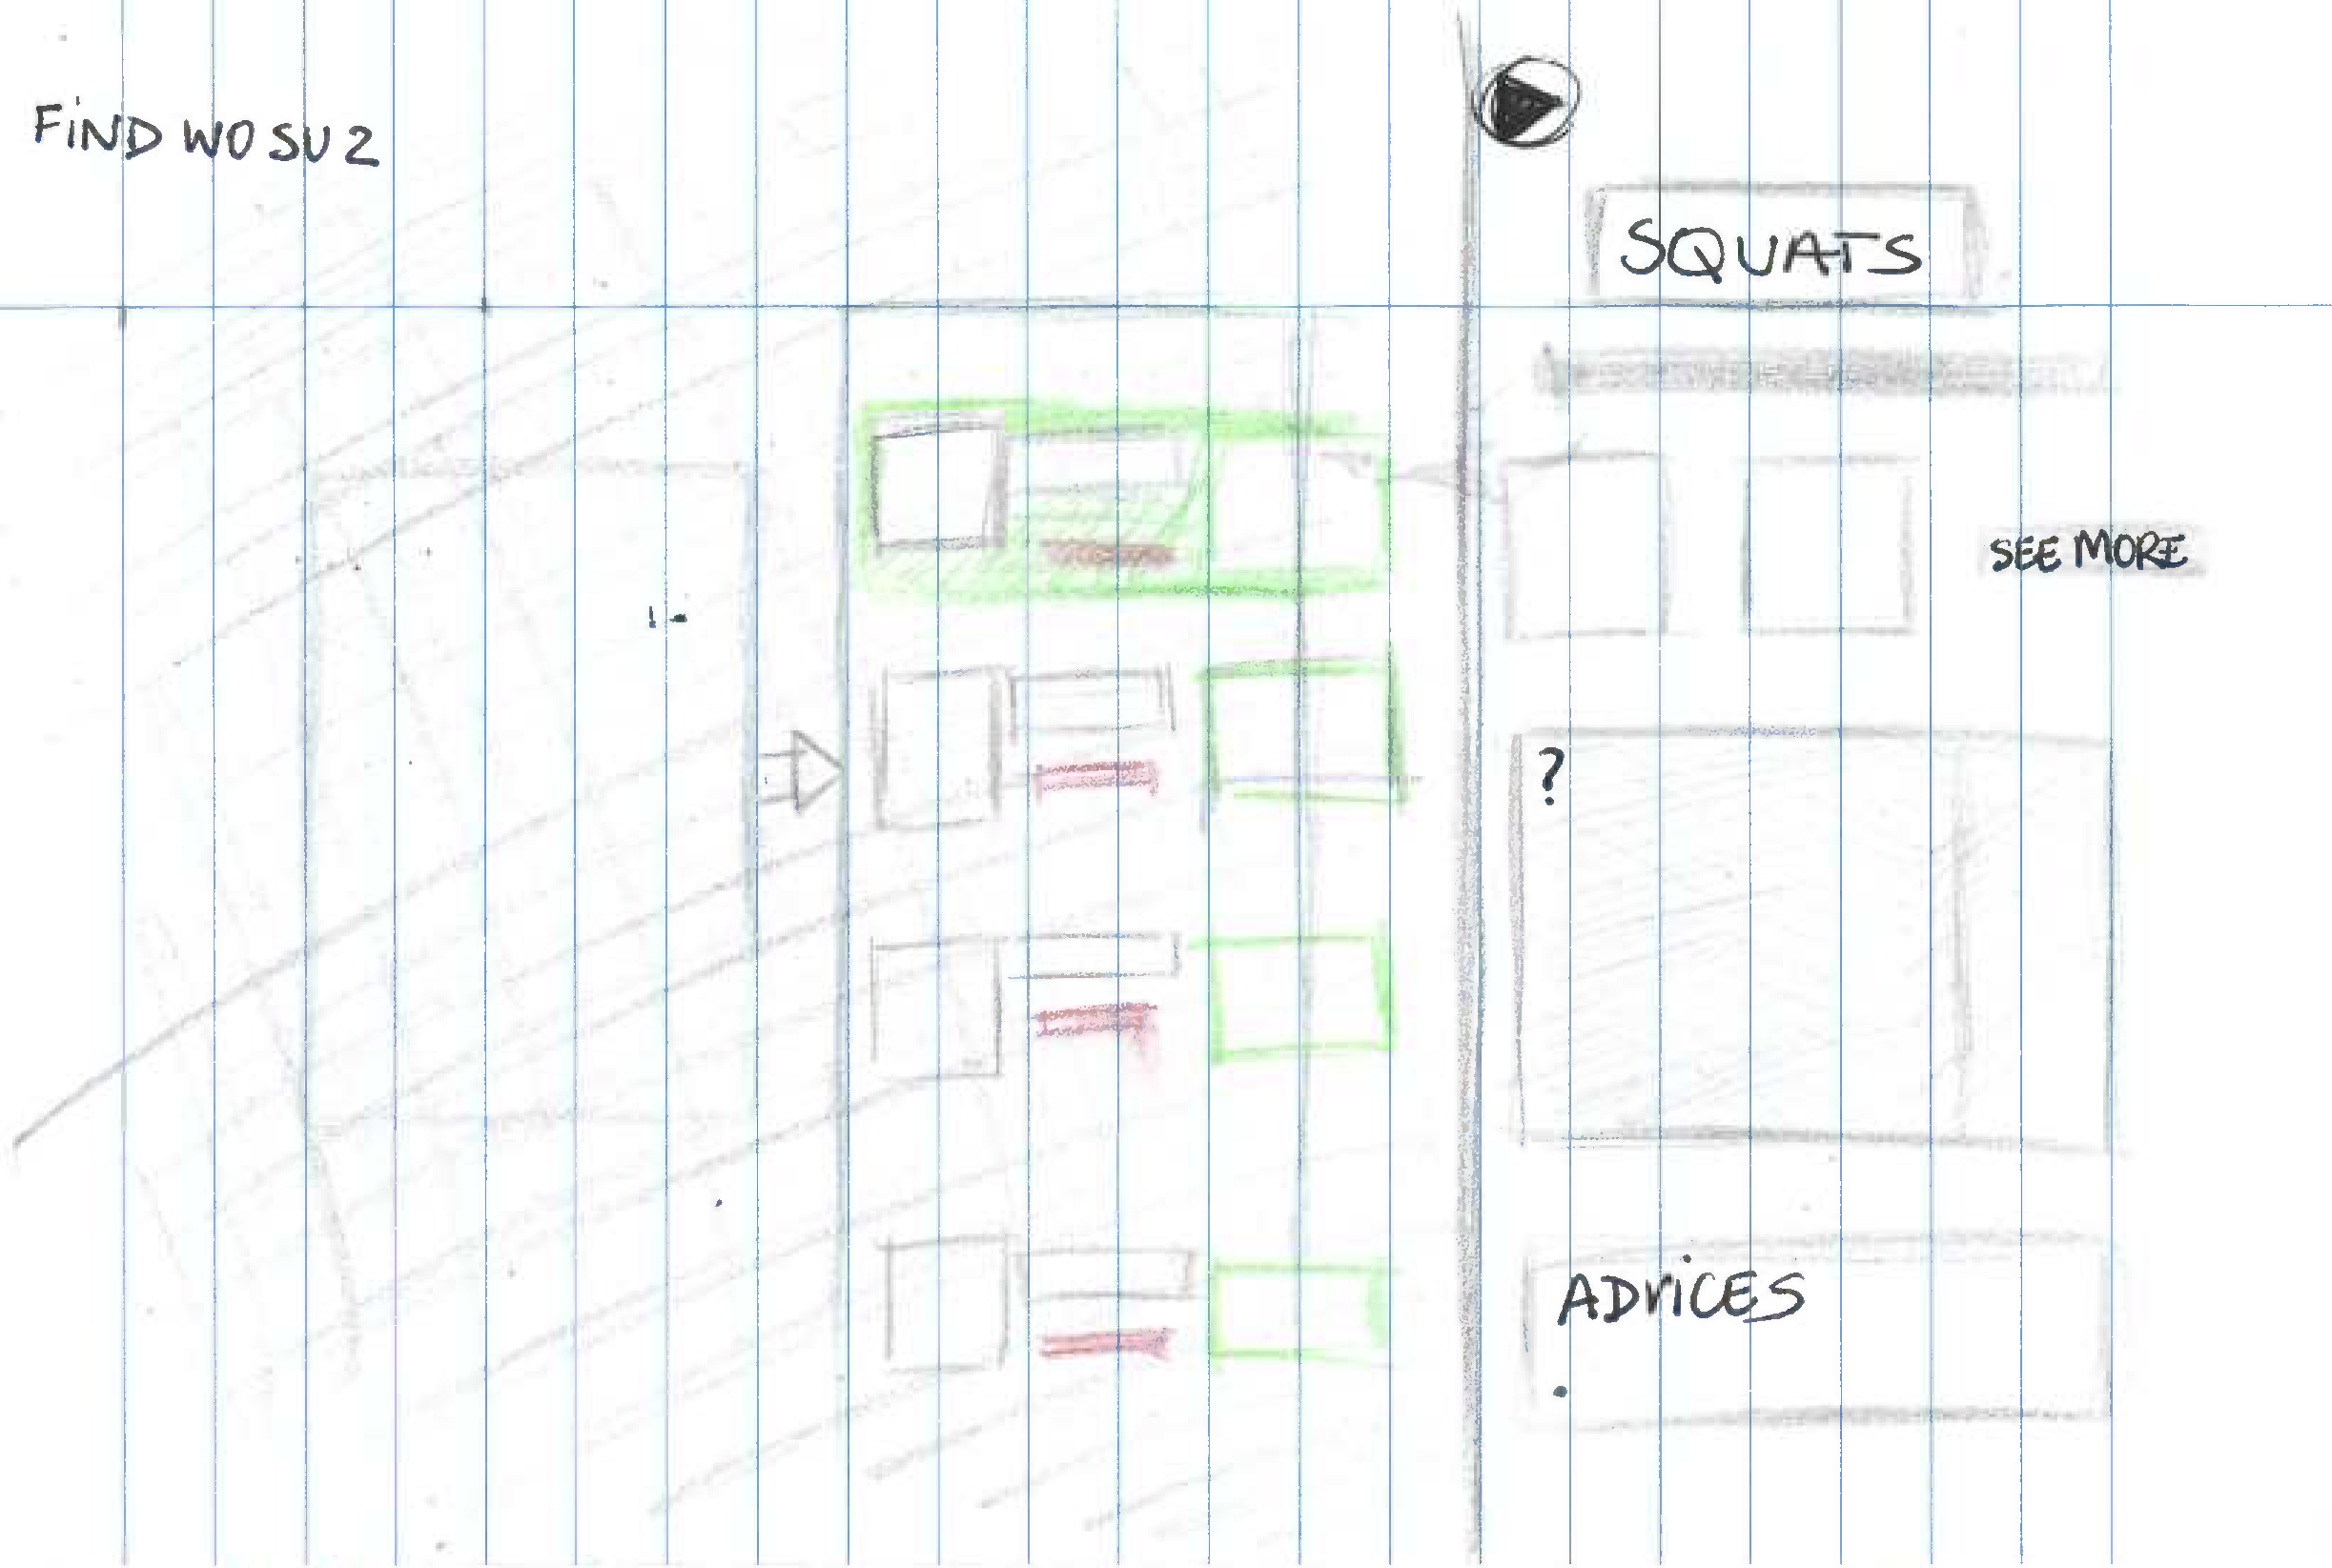 FIND WO SU 2
SQUATS
SEE MORE
?
ADVICES